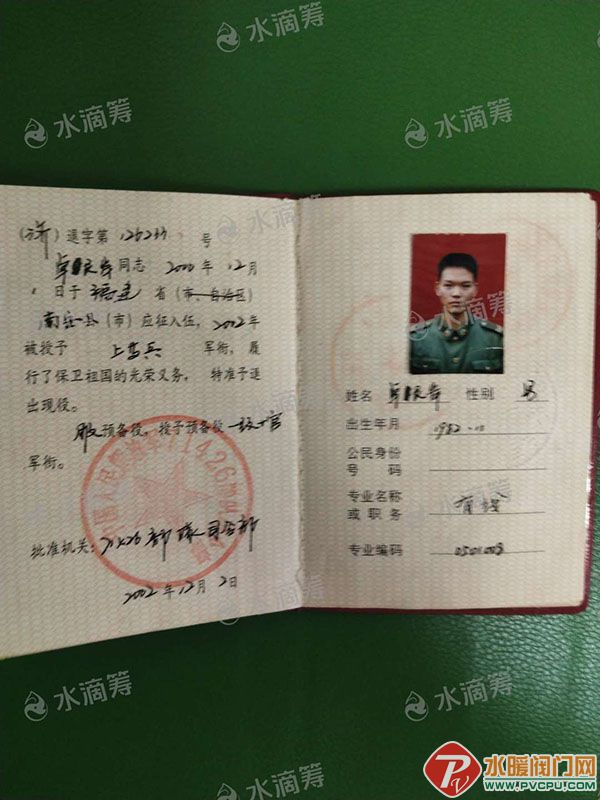 水滴筹
水滴筹
水滴筹
水滴筹
（济）退字第 号
同志 2000 年 12 月
日于 福建 省（市 自治区）
南安 县（市）应征入伍，2002 年
被授予 上等兵 军衔，履
行了保卫祖国的光荣义务， 特准予退
出现役。
服 预备役，授予预备役
军衔。
批准机关： 71426 部队司令部
2002 年 12 月 2 日
姓名 性别 男
出生年月 1982.10
公民身份
号 码
专业名称
或 职 务
专业编码
水滴筹
水滴筹
水滴筹
水暖阀门网
WWW.PVCPU.COM